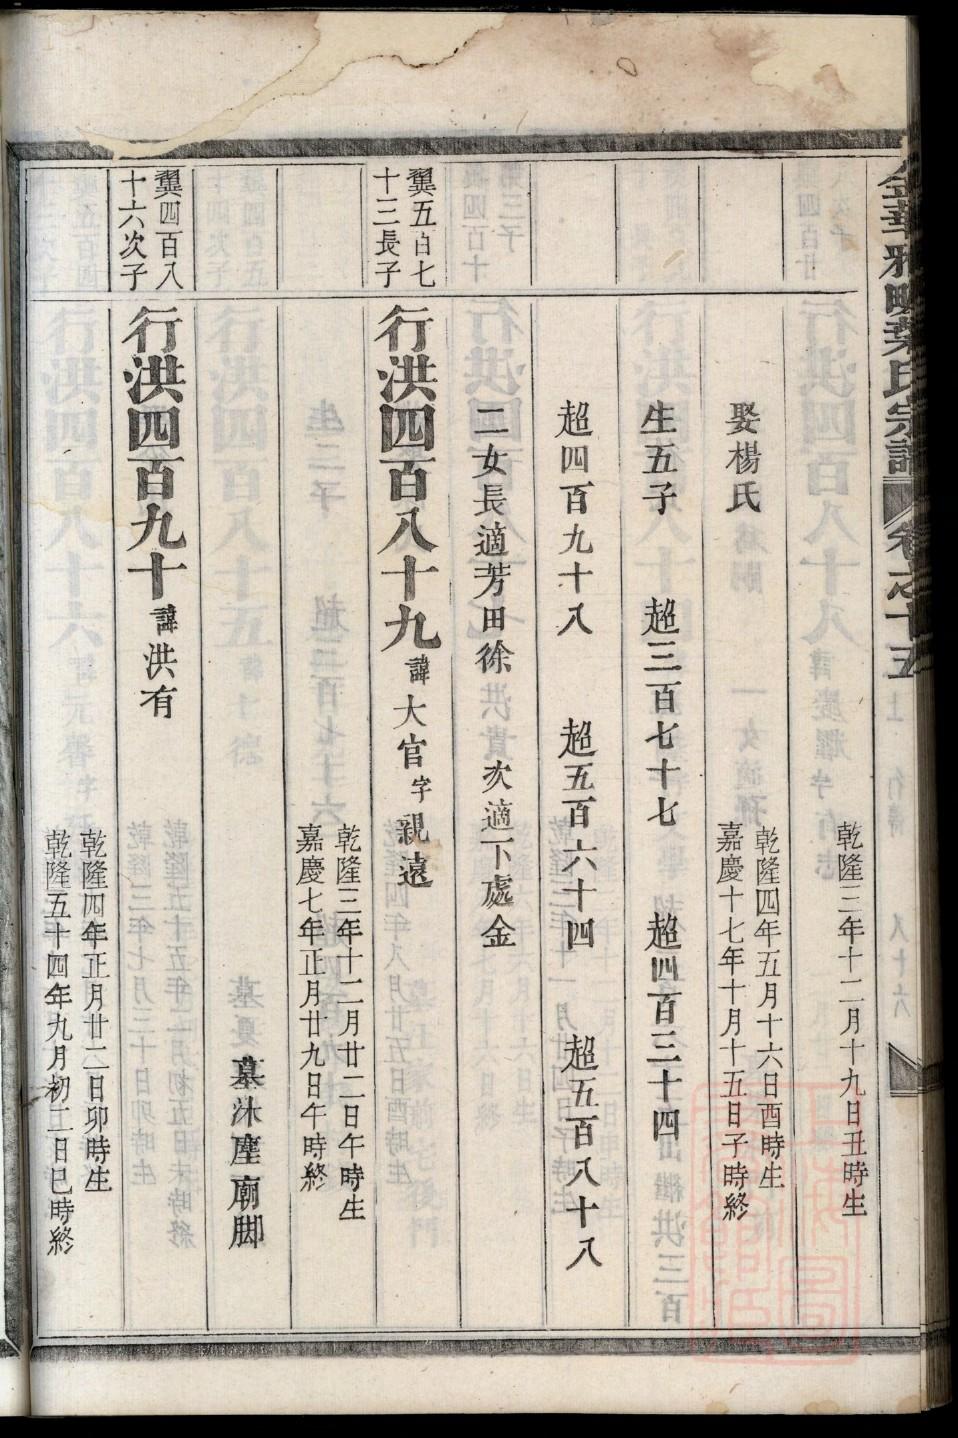 金華雅畈葉氏宗譜 卷之十五
乾隆三年十二月十九日丑時生
娶楊氏
乾隆四年五月十六日酉時生
嘉慶十七年十月十五日子時終
生五子 超三百七十七 超四百三十四出繼洪三百
超四百九十八 超五百六十四 超五百八十八
二女長適芳田徐 次適下處金
翼五百七
十三長子
行洪四百八十九諱大官字親遠
乾隆三年十二月廿二日午時生
嘉慶七年正月廿九日午時終
墓沐塵廟脚
翼四百八
十六次子
行洪四百九十諱洪有
乾隆四年正月廿二日卯時生
乾隆五十四年九月初二日巳時終